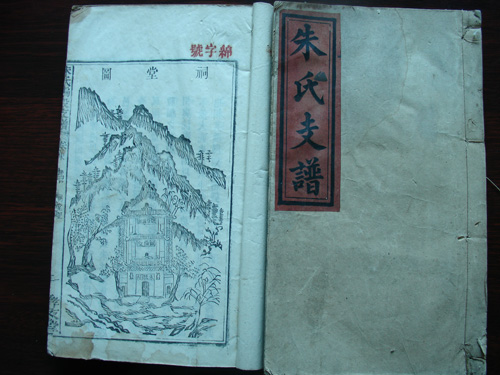 朱氏支譜
綿字號
祠堂圖